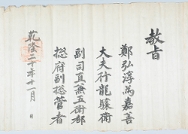 教旨
鄭弘淳為嘉善
大夫行龍驤衛
副司直兼五衛都
揔府副揔管者
乾隆二十年十一月 日